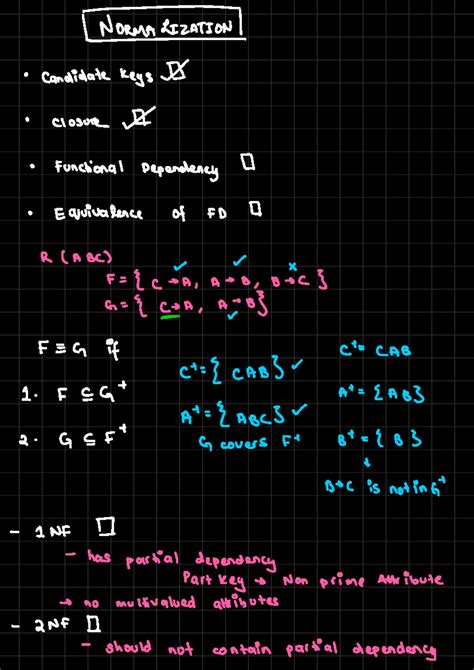 NORMALIZATION
• Candidate keys
• Closure
• Functional Dependency
• Equivalence of FD
R (ABC)
F = { C → A, A → B, B → C }
G = { C → A, A → B }
F ≡ G if
1. F ⊆ G⁺
2. G ⊆ F⁺
C⁺ = { CAB } ✓
A⁺ = { ABC } ✓
G covers F⁺
C⁺ = CAB
A⁺ = { AB }
B⁺ = { B }
B→C is not in G⁺
- 1NF
- has partial dependency
Part key → Non prime Attribute
→ no multivalued attributes
- 2NF
- should not contain partial dependency